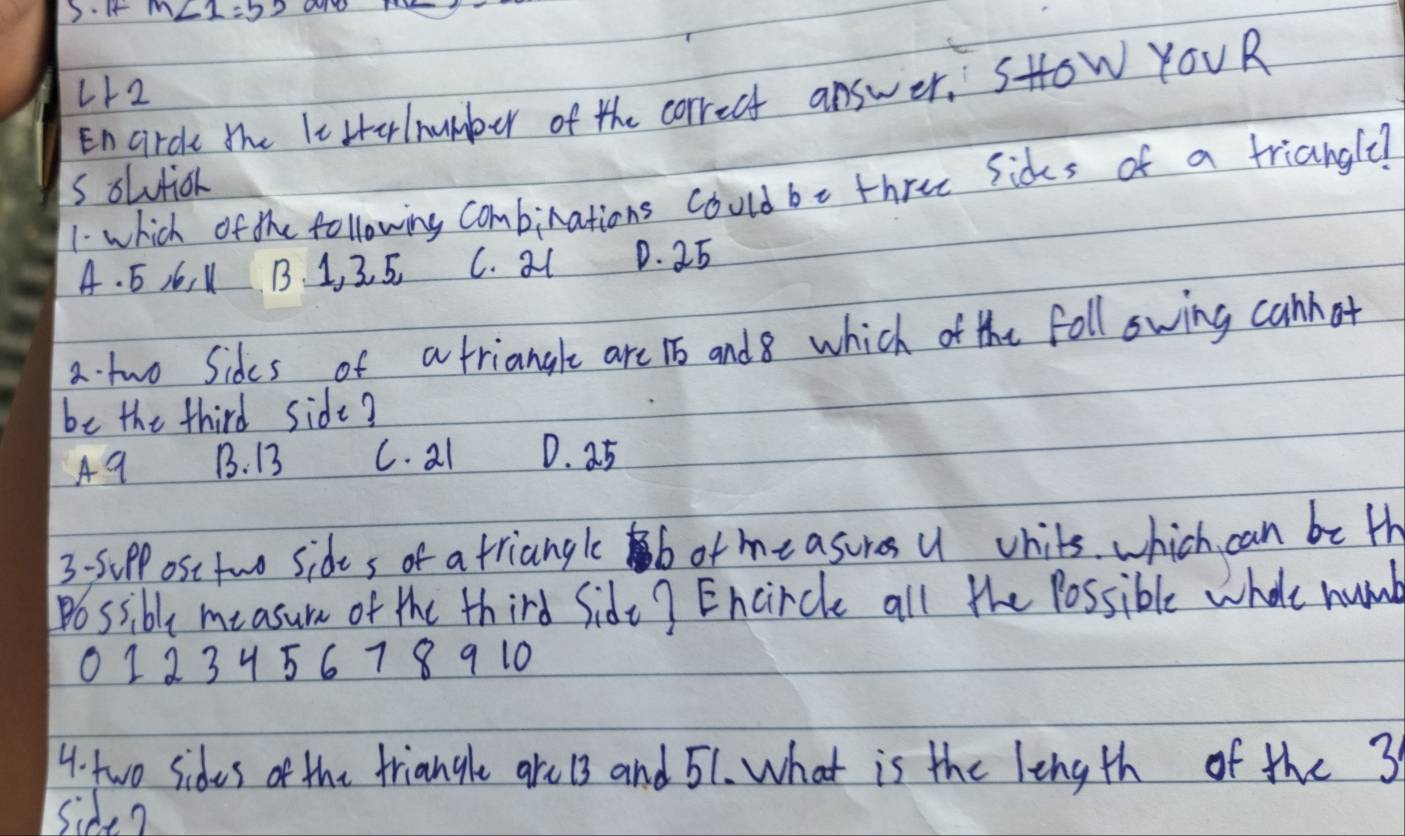 5. If m∠1=55 and m∠
L t 2
Encircle the letter/number of the correct answer. SHOW YOUR
Solution
1. which of the following combinations could be three sides of a triangle?
A. 5, 6, 11 B. 1, 3, 5, C. 21 D. 25
2. two sides of a triangle are 15 and 8 which of the following cannot
be the third side?
A 9 B. 13 C. 21 D. 25
3-Suppose two sides of a triangle b of measures 4 units. which can be th
possible measure of the third side? Encircle all the possible whole numb
0 1 2 3 4 5 6 7 8 9 10
4. two sides of the triangle are 13 and 51. What is the length of the 3
side?